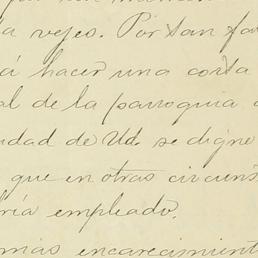 a vejes. Por tan fa
á hacer una corta
al de la parroquia
udad de Ud. se digne
que en otras circuns
ría empleado.
más encarecimient